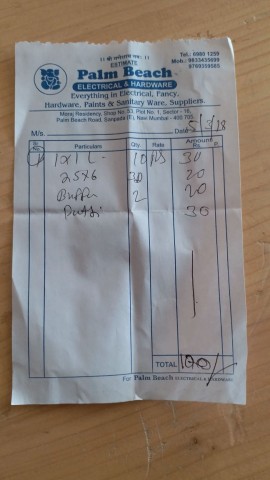 ।। श्री गणेशाय नमः ।।
ESTIMATE
Tel.: 6960 1259
Mob.: 9833435699
9769359565
Palm Beach
ELECTRICAL & HARDWARE
Everything in Electrical, Fancy,
Hardware, Paints & Sanitary Ware, Suppliers.
Maraj Residency, Shop No. 53, Plot No. 1, Sector - 16,
Palm Beach Road, Sanpada (E), Navi Mumbai - 400 705.
M/s. Date
Sr. No. Particulars Qty. Rate Amount Rs. P.
10 30
25x6 30 20
Buffer 2 20
Patti 30
TOTAL 100/-
For Palm Beach ELECTRICAL & HARDWARE